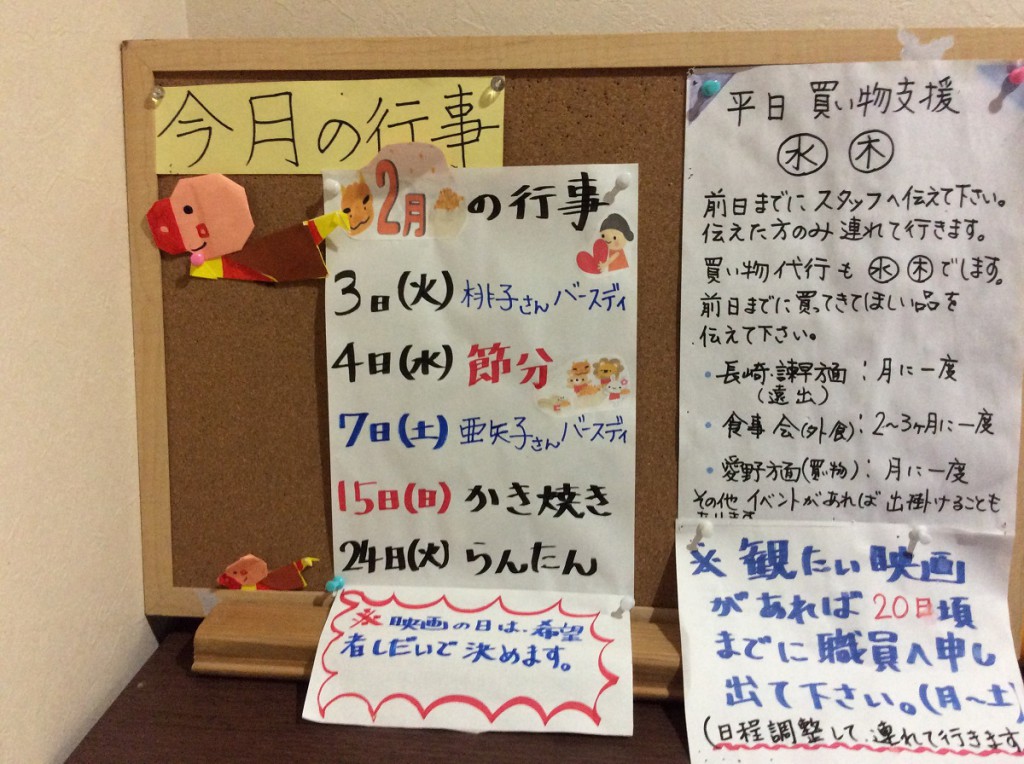 今月の行事
2月の行事
3日(火) 桃子さんバースディ
4日(水) 節分
7日(土) 亜矢子さんバースディ
15日(日) かき焼き
24日(火) らんたん
※映画の日は、希望
者しだいで決めます。
平日 買い物支援
水 木
前日までにスタッフへ伝えて下さい。
伝えた方のみ連れて行きます。
買い物代行も水木でします。
前日までに買ってきてほしい品を
伝えて下さい。
・長崎・諫早方面：月に一度
(遠出)
・食事会(外食)：2〜3ヶ月に一度
・愛野方面(買い物)：月に一度
その他イベントがあれば出掛けることも
あります
※観たい映画
があれば20日頃
までに職員へ申し
出て下さい。(月〜土)
(日程調整して、連れて行きます